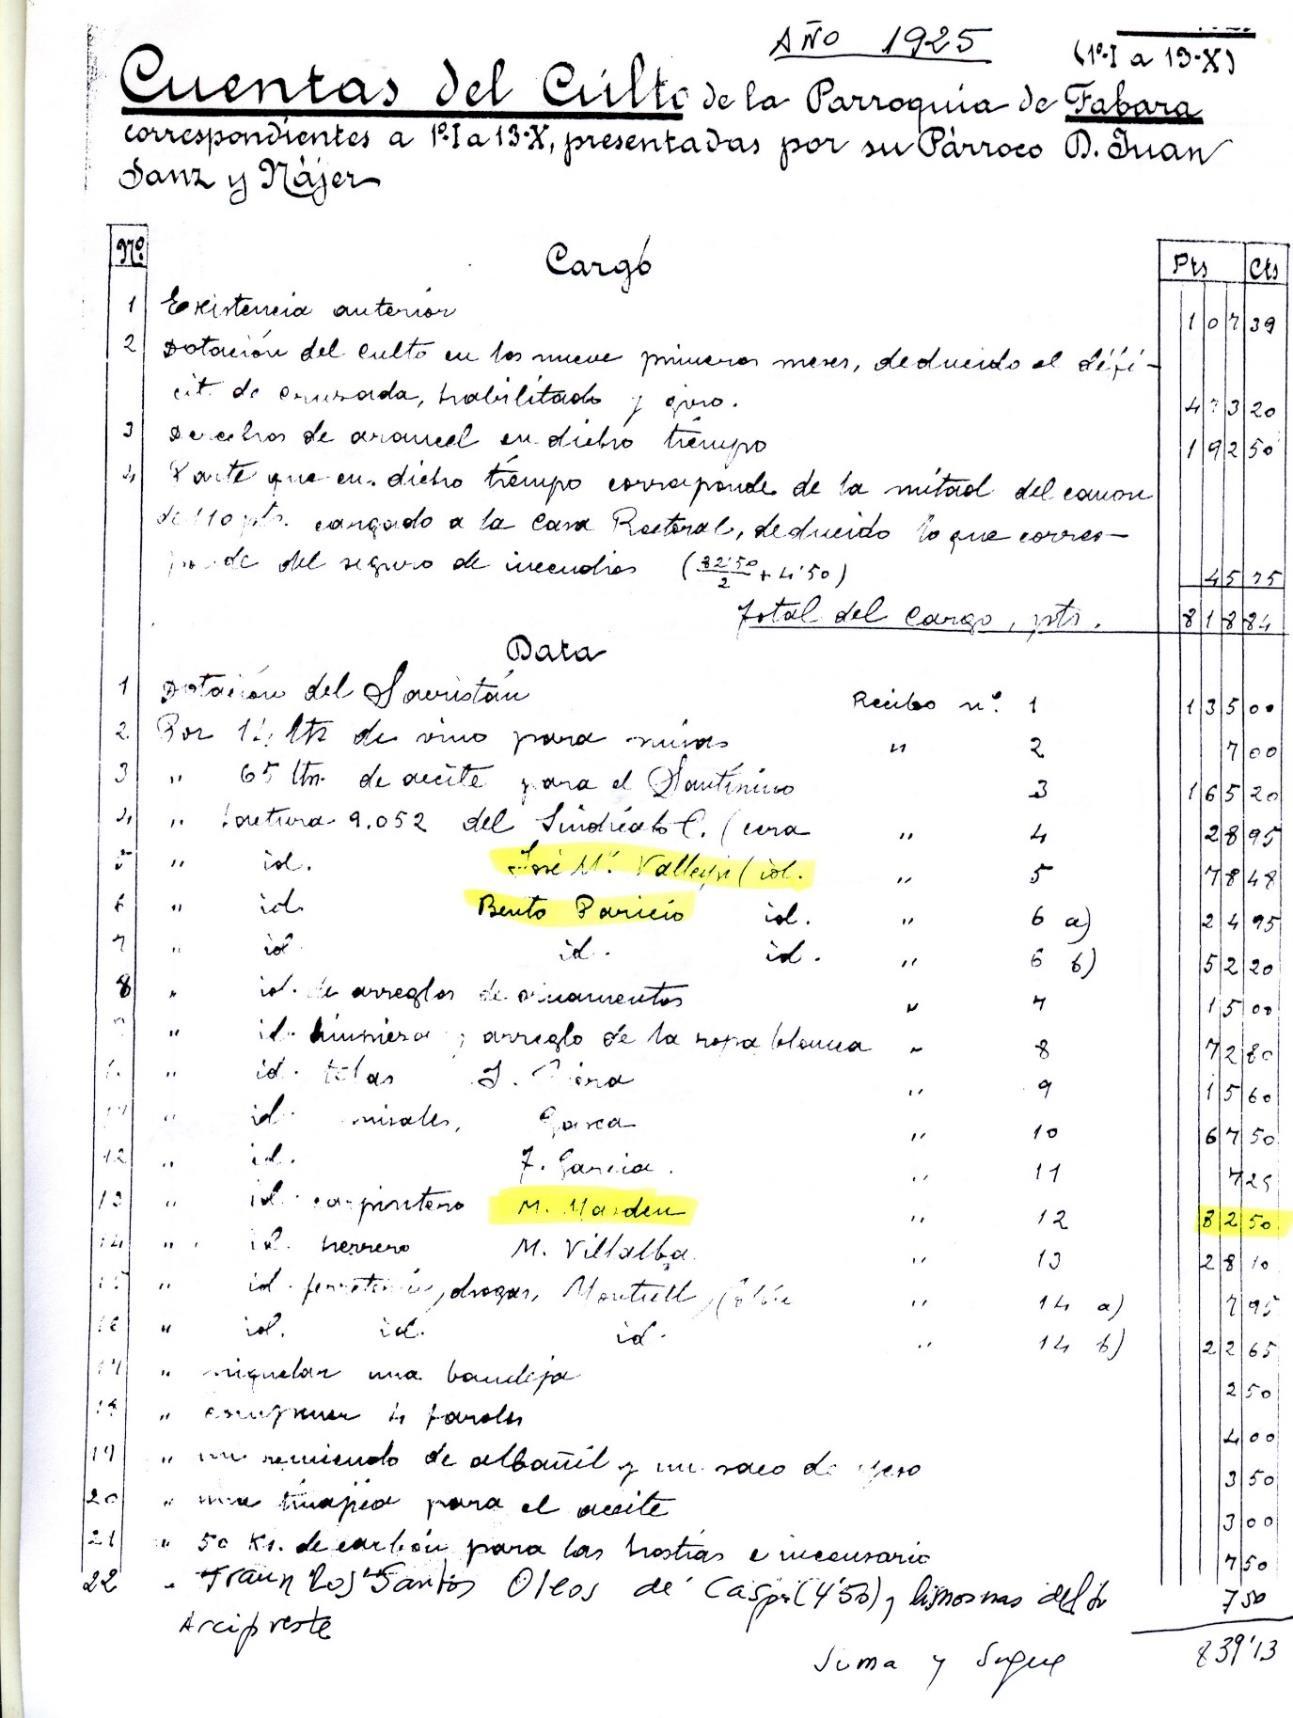 AÑO 1925
(1º-I a 13-X)
Cuentas del Culto de la Parroquia de Fabara
correspondientes a 1º-I a 13-X, presentadas por su Párroco D. Juan
Sanz y Nájer
Nº Cargo Pts Cts
1 Existencia anterior 107 39
2 Dotación del culto en los nueve primeros meses, deducido el défi-
cit de cruzada, habilitado y giro. 473 20
3 Derechos de arancel en dicho tiempo 192 50
4 Parte que en dicho tiempo corresponde de la mitad del canon
de 110 pts. cargado a la Casa Rectoral, deducido lo que corres-
ponde del seguro de incendios (82'50/2 + 4'50) 45 75
Total del Cargo, pts. 818 84
Data
1 Dotación del Sacristán Recibo nº. 1 135 00
2 Por 14 lts de vino para misas " 2 7 00
3 " 65 lts. de aceite para el Santísimo 3 165 20
4 " factura 9.052 del Sindicato C. (cera " 4 28 95
5 " id. José Mª. (id. " 5 78 48
6 " id. Benito Paricio id. " 6 a) 24 95
7 " id. id. id. " 6 b) 52 20
8 " id. de arreglos de ornamentos " 7 15 00
" id. limpieza y arreglo de la ropa blanca " 8 72 80
" id. telas J. " 9 15 60
" id. misales, " 10 67 50
12 " id. F. García. " 11 7 25
13 " id. carpintero M. " 12 82 50
14 " id. herrero M. Villalba " 13 28 10
15 " id. ferretería, drogas, " 14 a) 7 95
16 " id. id. id. " 14 b) 22 65
17 " niquelar una bandeja 2 50
18 " componer 4 faroles 4 00
19 " un remiendo de albañil y un saco de yeso 3 50
20 " una tinajica para el aceite 3 00
21 " 50 Ks. de carbón para las hostias e incensario 7 50
22 " Traer los Santos Oleos de Caspe (4'50) y limosnas del Sr 7 50
Arcipreste
Suma y Sigue 839'13